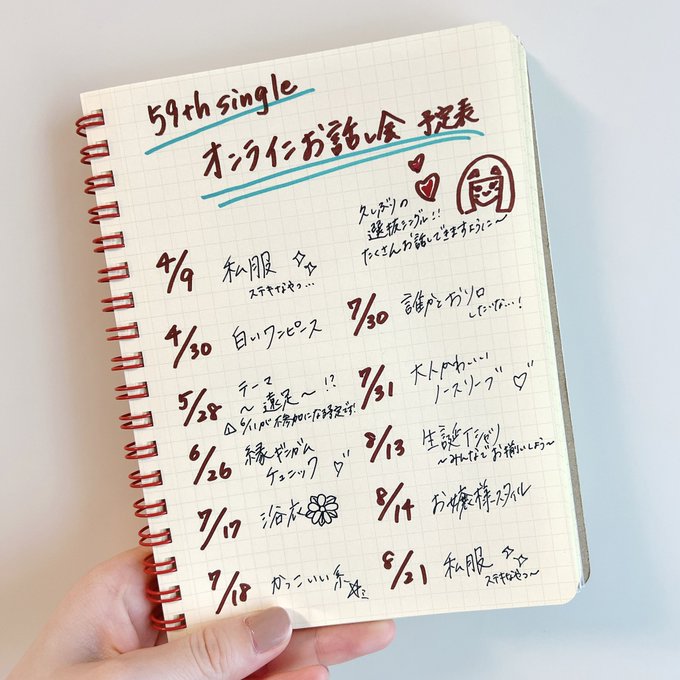 59th single
オンラインお話し会 予定表
久しぶりの
選抜シングル!!
たくさんお話しできますように〜
4/9 私服
ステキなやつ…
4/30 白いワンピース
5/28 テーマ
〜遠足〜 !?
⚠ 6/11が参加になる予定です!
6/26 緑ギンガム
チュニック ♡
7/17 浴衣
7/18 かっこいい系
7/30 誰かとおソロ
したいな…!
7/31 大人かわいい
ノースリーブ ♡
8/13 生誕Tシャツ
〜みんなでお揃いしよう〜
8/14 お嬢様スタイル
8/21 私服
ステキなやつ〜